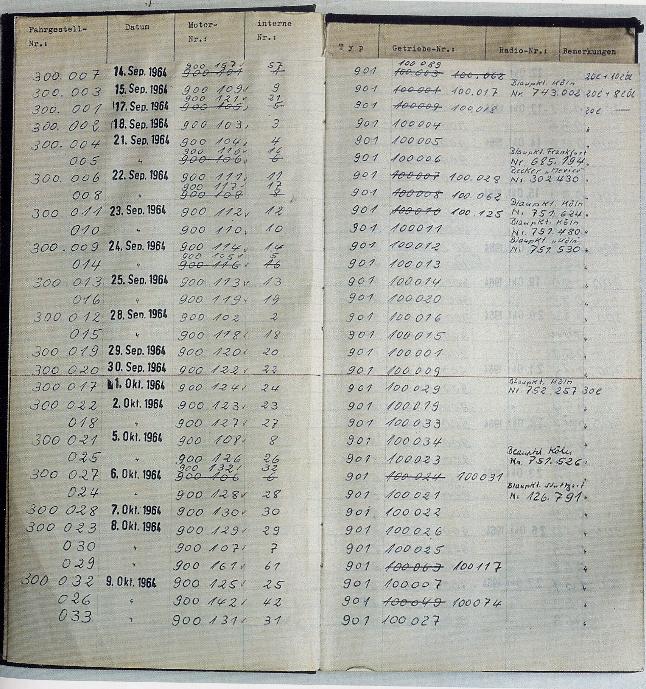 Fahrgestell-Nr.: Datum Motor-Nr.: interne Nr.: Typ Getriebe-Nr.: Radio-Nr.: Bemerkungen
300.007 14. Sep. 1964 900 157 57 901 100 089 100.062
300.003 15. Sep. 1964 900 109 9 901 100.017 Blaupkt. Köln Nr. 743.002
300.001 17. Sep. 1964 900 121 21 901 100.018
300.002 18. Sep. 1964 900 103 3 901 100004
300.004 21. Sep. 1964 900 104 4 901 100005
005 " 900 116 16 901 100006 Blaupkt. Frankfurt Nr. 685.194
300.006 22. Sep. 1964 900 111 11 901 100007 100.028 Nr. 302430
008 " 900 117 17 901 100008 100 062
300 011 23. Sep. 1964 900 112 12 901 100010 100 125 Blaupkt. Köln Nr. 751.624
010 " 900 110 10 901 100011 Blaupkt. Köln Nr. 751.480
300.009 24. Sep. 1964 900 114 14 901 100012 Blaupkt. Köln Nr. 751 530
014 " 900 105 5 901 100013
300 013 25. Sep. 1964 900 113 13 901 100014
016 " 900 119 19 901 100020
300 012 28. Sep. 1964 900 102 2 901 100016
015 " 900 118 18 901 100015
300 019 29. Sep. 1964 900 120 20 901 100001
300 020 30. Sep. 1964 900 122 22 901 100009
300 017 1. Okt. 1964 900 124 24 901 100029 Blaupkt. Köln Nr. 752.257
300 022 2. Okt. 1964 900 123 23 901 100019
018 " 900 127 27 901 100033
300 021 5. Okt. 1964 900 108 8 901 100034
025 " 900 126 26 901 100023 Blaupkt Köln Nr. 751.526
300 027 6. Okt. 1964 900 132 32 901 100024 100031
024 " 900 128 28 901 100021 Blaupkt. Stuttgart Nr. 126.791
300 028 7. Okt. 1964 900 130 30 901 100022
300 023 8. Okt. 1964 900 129 29 901 100026
030 " 900 107 7 901 100025
029 " 900 161 61 901 100063 100117
300 032 9. Okt. 1964 900 125 25 901 100007
026 " 900 142 42 901 100049 100074
033 " 900 131 31 901 100027